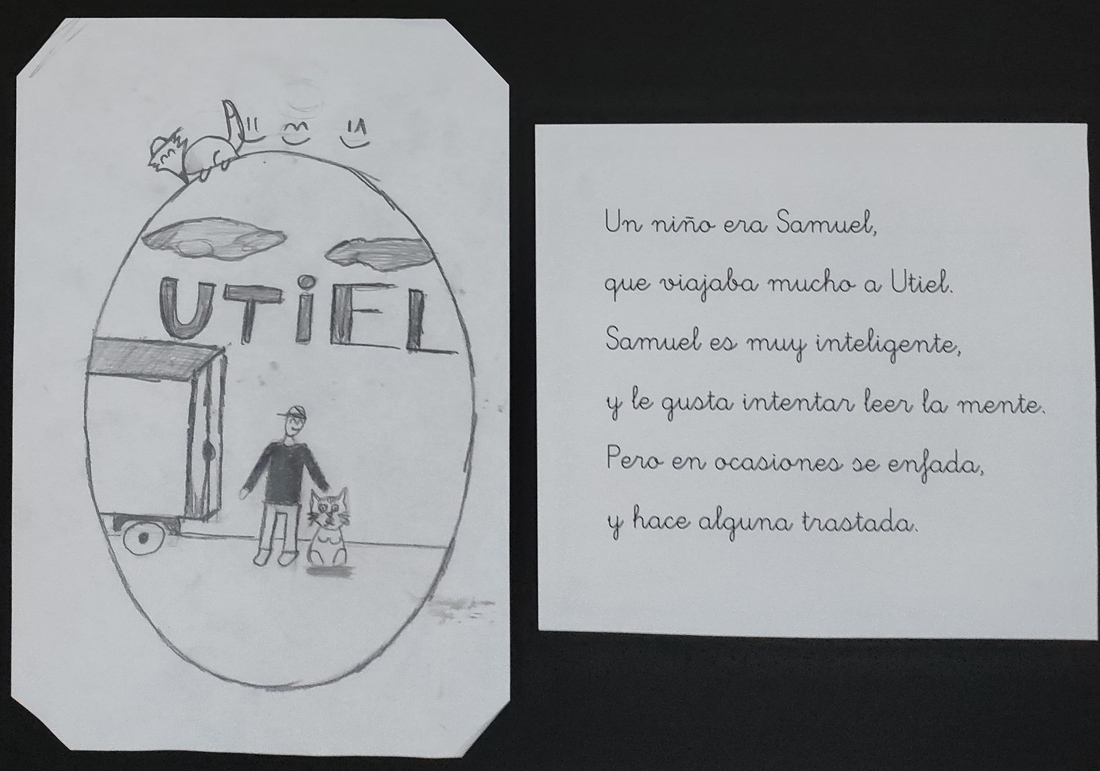 UTiEL
Un niño era Samuel,
que viajaba mucho a Utiel.
Samuel es muy inteligente,
y le gusta intentar leer la mente.
Pero en ocasiones se enfada,
y hace alguna trastada.